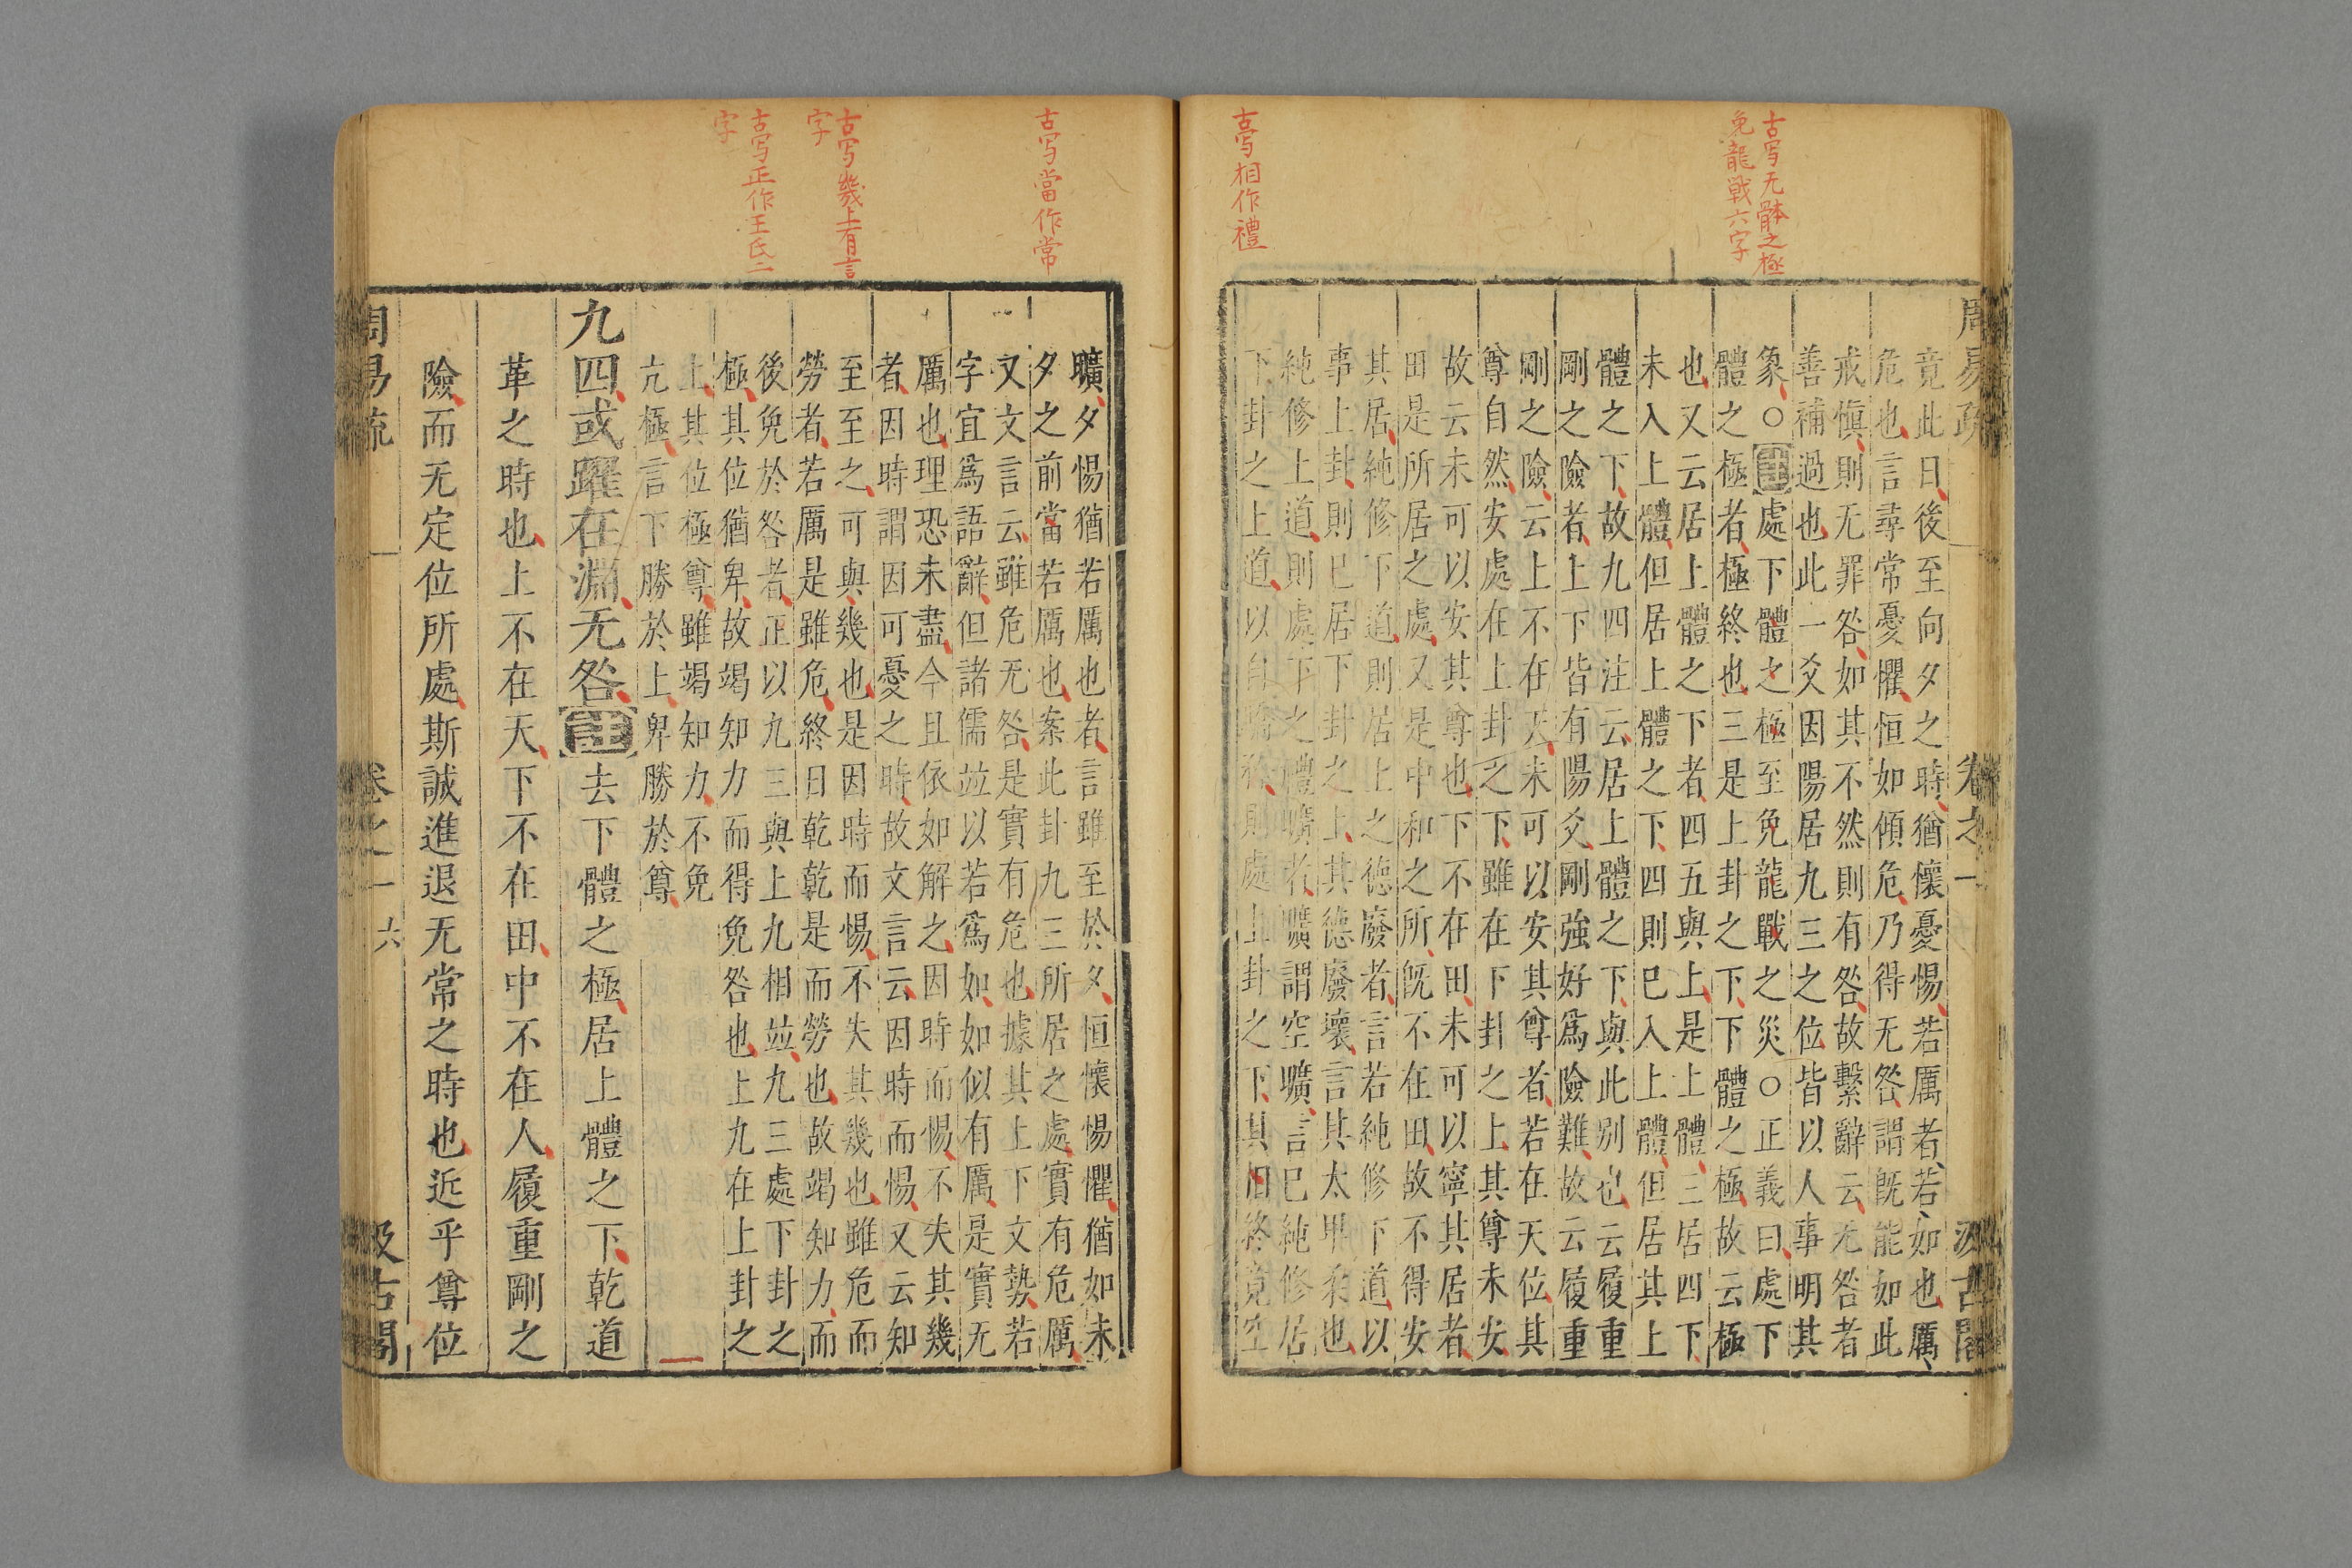 古写无體之極
免龍戰六字
古写相作禮
周易疏
卷之一
汲古閣
竟此日後至向夕之時猶懷憂惕若厲者若如也厲
危也言尋常憂懼恒如傾危乃得无咎謂旣能如此
戒愼則无罪咎如其不然則有咎故繫辭云无咎者
善補過也此一爻因陽居九三之位皆以人事明其
象○註處下體之極至免龍戰之災○正義曰處下
體之極者極終也三是上卦之下下體之極故云極
也又云居上體之下者四五與上是上體三居四下
未入上體但居上體之下四則已入上體但居其上
體之下故九四注云居上體之下與此別也云履重
剛之險者上下皆有陽爻剛強好爲險難故云履重
剛之險云上不在天未可以安其尊者若在天位其
尊自然安處在上卦之下雖在下卦之上其尊未安
故云未可以安其尊也下不在田未可以寧其居者
田是所居之處又是中和之所旣不在田故不得安
其居純修下道則居上之德廢者言若純修下道以
事上卦則已居下卦之上其德廢壞言其太卑柔也
純修上道則處下之禮曠者曠謂空曠言已純修居
下卦之上道以自驕矜則處上卦之下其相終竟空
古写當作常
古写幾上有言
字
古写正作王氏二
字
曠夕惕猶若厲也者言雖至於夕恒懷惕懼猶如未
夕之前當若厲也案此卦九三所居之處實有危厲
又文言云雖危无咎是實有危也據其上下文勢若
字宜爲語辭但諸儒竝以若爲如如似有厲是實无
厲也理恐未盡今且依如解之因時而惕不失其幾
者因時謂因可憂之時故文言云因時而惕又云知
至至之可與幾也是因時而惕不失其幾也雖危而
勞者若厲是雖危終日乾乾是而勞也故竭知力而
後免於咎者正以九三與上九相竝九三處下卦之
極其位猶卑故竭知力而得免咎也上九在上卦之
上其位極尊雖竭知力不免
亢極言下勝於上卑勝於尊
九四或躍在淵无咎註去下體之極居上體之下乾道
革之時也上不在天下不在田中不在人履重剛之
險而无定位所處斯誠進退无常之時也近乎尊位
周易疏
卷之一
六
汲古閣